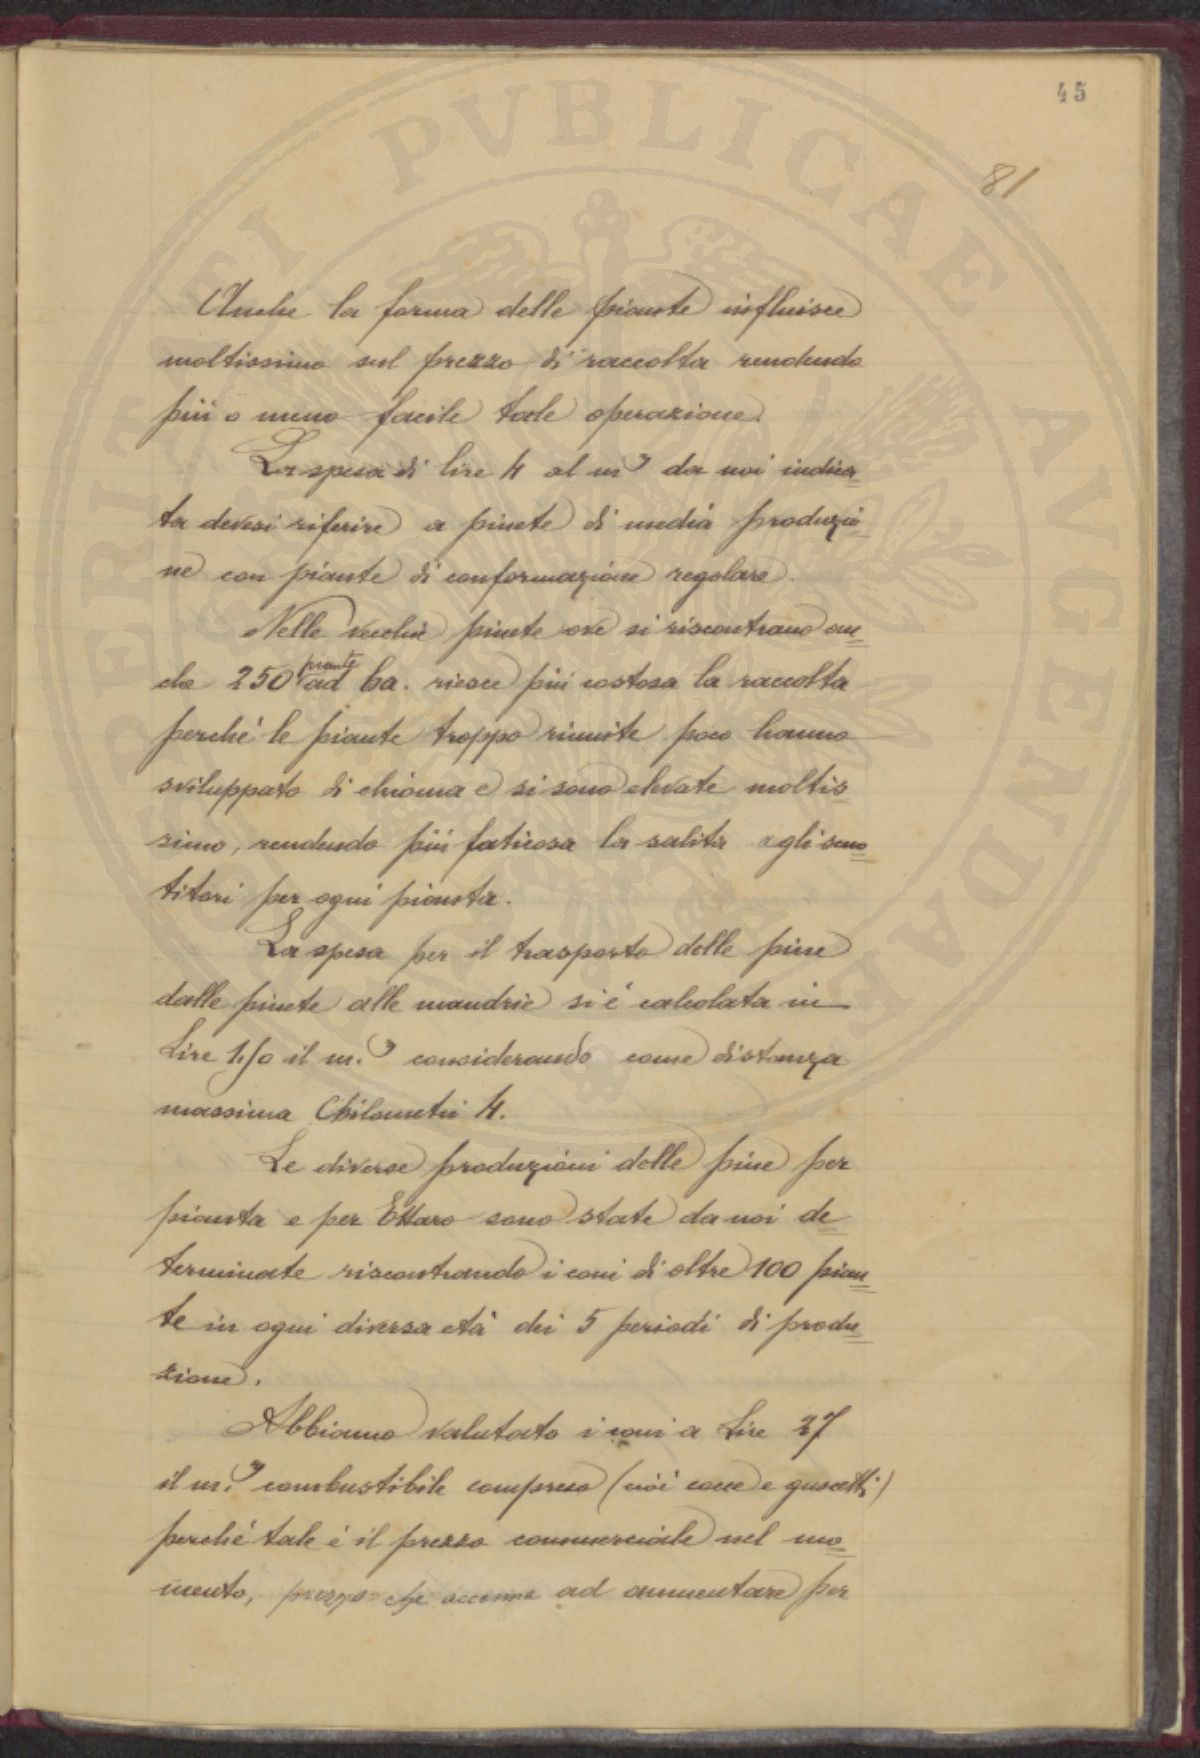 45
81
Anche la forma delle piante influisce
moltissimo sul prezzo di raccolta rendendo
più o meno facile tale operazione.
La spesa di lire 4 al m³ da noi indica=
ta devesi riferire a pinete di media produzio=
ne con piante di conformazione regolare.
Nelle vecchie pinete ove si riscontrano an=
che 250 piante ad ha. riesce più costosa la raccolta
perché le piante troppo riunite poco hanno
sviluppato di chioma e si sono elevate moltis=
simo, rendendo più faticosa la salita agli scuo=
titori per ogni pianta.
La spesa per il trasporto delle pine
dalle pinete alle mandrie si é calcolata in
Lire 1.50 il m.³ considerando come distanza
massima Chilometri 4.
Le diverse produzioni delle pine per
pianta e per Ettaro sono state da noi de=
terminate riscontrando i coni di oltre 100 pian=
te in ogni diversa età dei 5 periodi di produ=
zione.
Abbiamo valutato i coni a Lire 27
il m.³ combustibile compreso (cioé cocce e guscetti)
perché tale é il prezzo commerciale nel mo=
mento, prezzo che accenna ad aumentare per
PERITEI PVBLICAE AVGENDAE